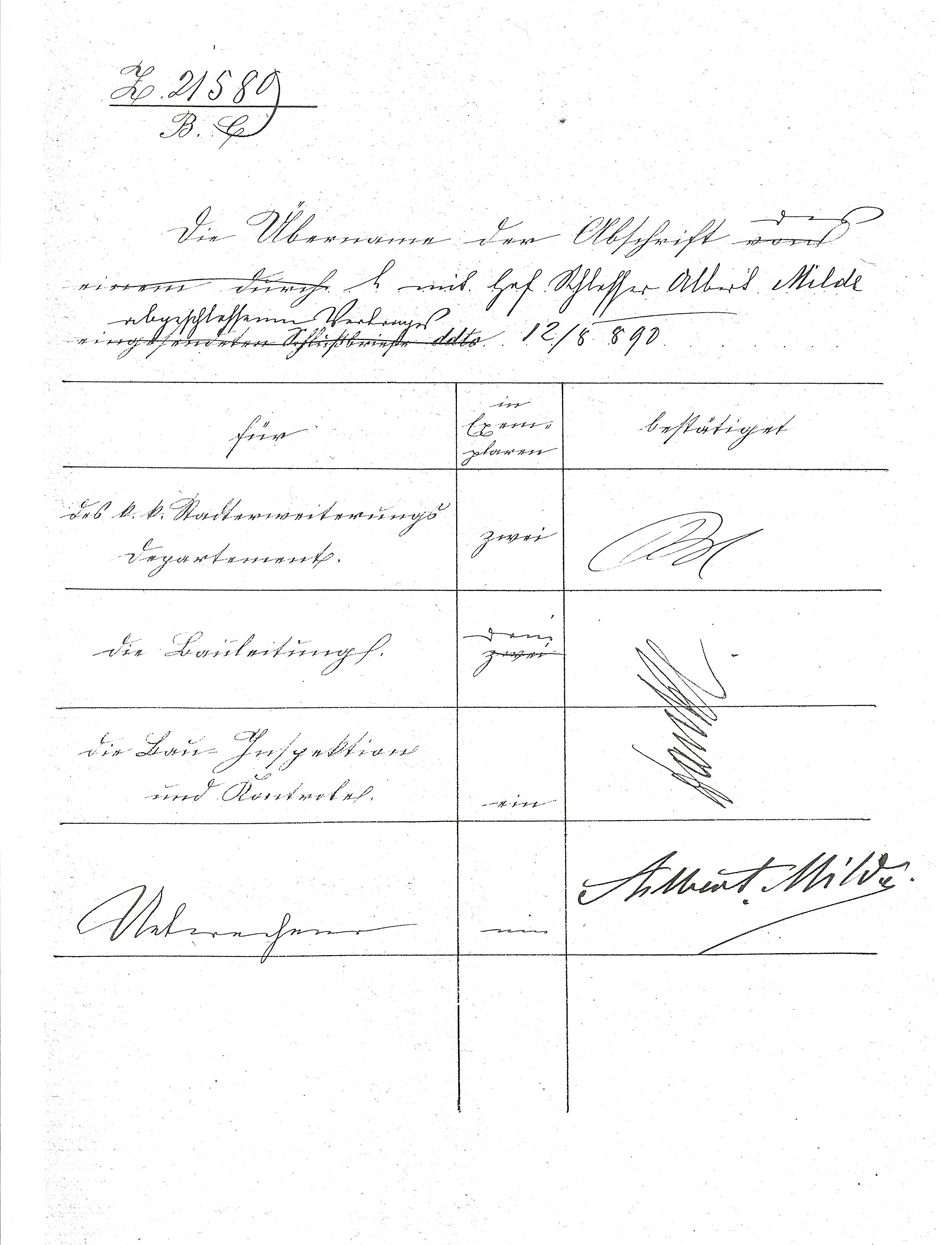 Z. 21580
B. C
Die Übername der Abschrift des vom
einem durch mit Hof Schlosser Albert Milde
abgeschlossenen Vertrages
eingesendeten Schlußbriefe ddto. 12/8 890.
für
in
Exem-
plaren
bestätiget
des k. k. Stadterweiterungs
Departement.
zwei
die Bauleitung
drei
zwei
die Bau- Inspektion
und Kontrole
ein
Unternehmer
ein
Albert Milde.